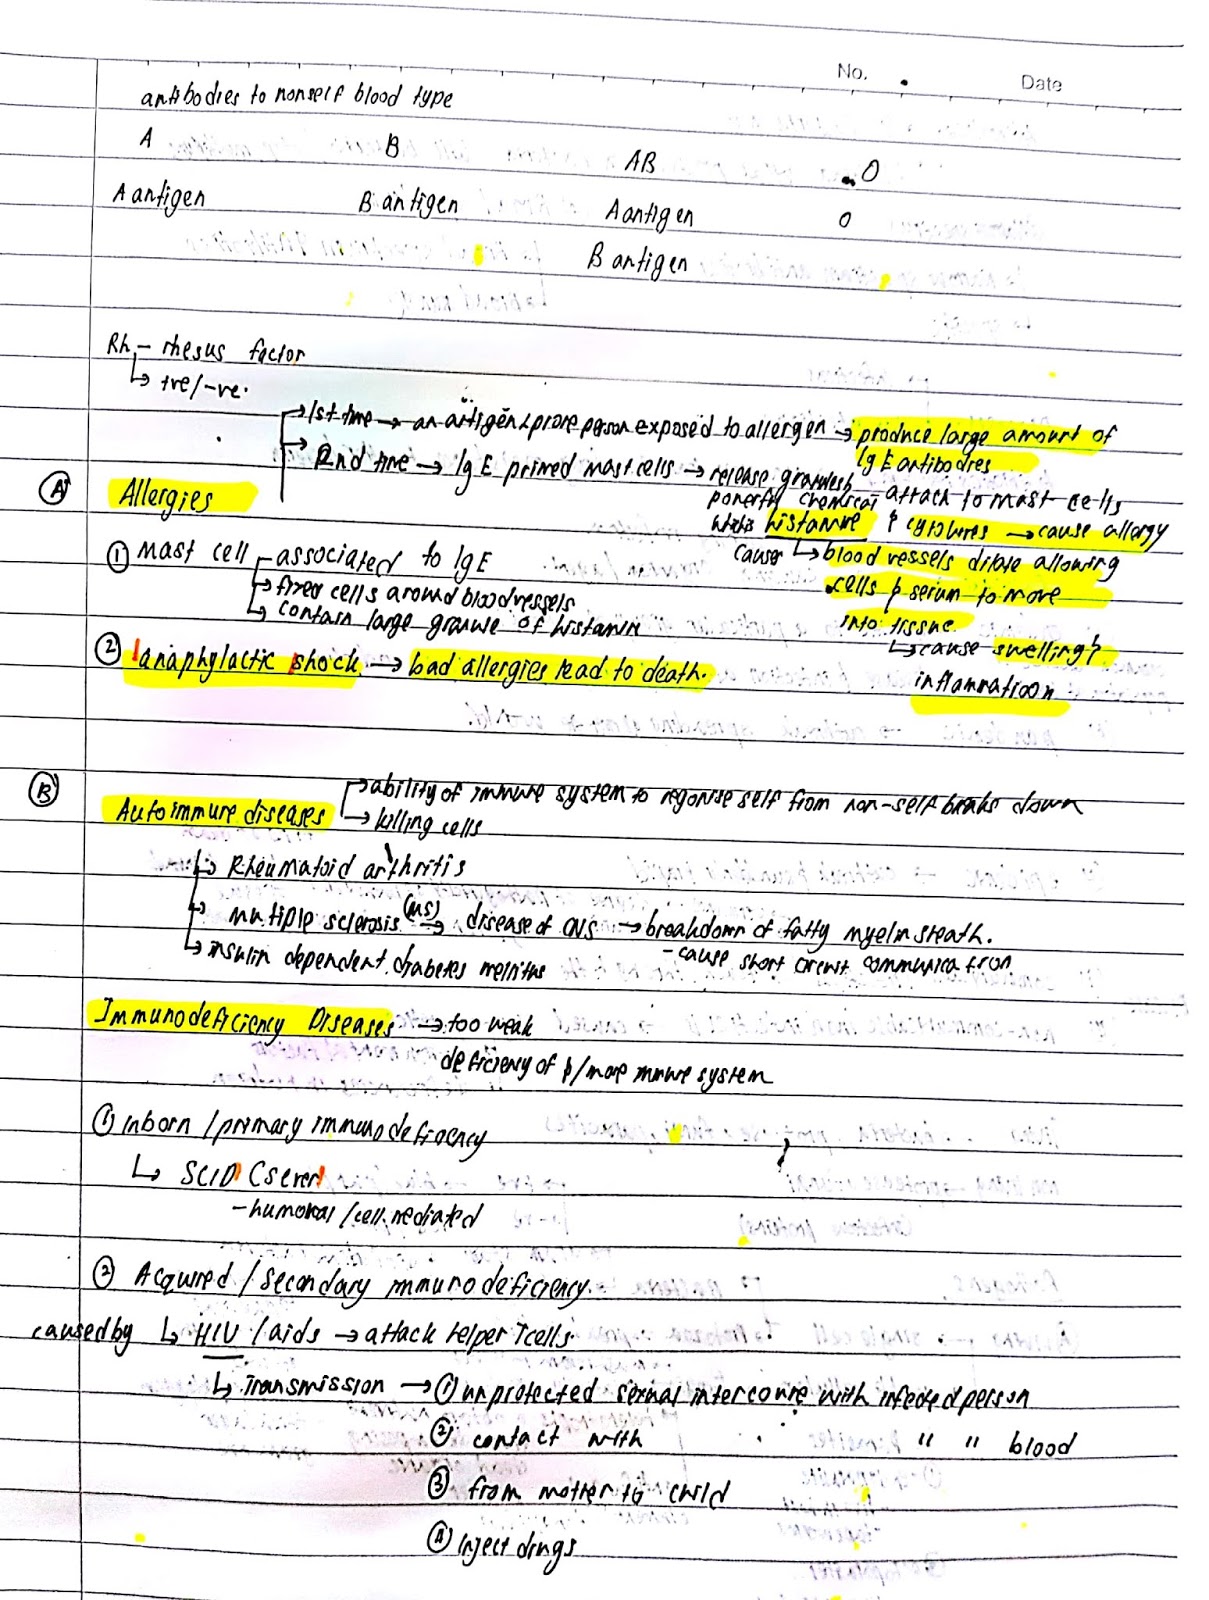 No.
Date
antibodies to nonself blood type
A B AB O
A antigen B antigen A antigen o
B antigen
Rh – rhesus factor
↳ +ve/-ve.
→ 1st time → an antigen prone person exposed to allergen → produce large amount of
IgE antibodies
→ 2nd time → IgE primed mast cells → release granules
powerful chemical – attach to mast cells
Ⓐ Allergies
histamine & cytokines → cause allergy
cause ↳ blood vessels dilate allowing
cells & serum to move
into tissue
↳ cause swelling &
inflammation
① mast cell – associated to IgE
→ fixed cells around blood vessels
↳ contain large granule of histamin
② anaphylactic shock → bad allergies lead to death.
Ⓑ Autoimmune diseases → ability of immune system to regonise self from non-self breaks down
→ killing cells
↳ Rheumatoid arthritis
↳ multiple sclerosis (MS) → disease of CNS → breakdown of fatty myelin sheath.
– cause short circuit communication
↳ insulin dependent diabetes mellitus
Immunodeficiency Diseases → too weak
deficiency of /more immune system
① inborn / primary immunodeficiency
↳ SCID (sever
– humoral / cell mediated
② Acquired / secondary immunodeficiency.
caused by ↳ HIV / aids → attack helper T cells
↳ Transmission → ① unprotected sexual intercourse with infected person
② contact with " " blood
③ from mother to child
④ inject drugs